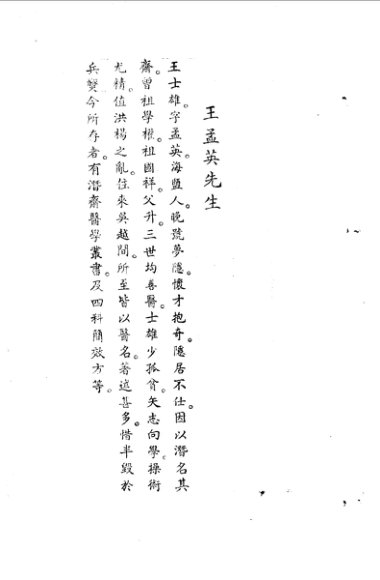 王孟英先生
王士雄。字孟英。海鹽人。晚號夢隱。懷才抱奇。隱居不仕。因以潛名其
齋。曾祖學權。祖國祥。父升。三世均善醫。士雄少孤貧。矢志向學。操術
尤精。值洪楊之亂。往來吳越間。所至皆以醫名。著述甚多。惜半毀於
兵燹。今所存者。有潛齋醫學叢書。及四科簡效方等。